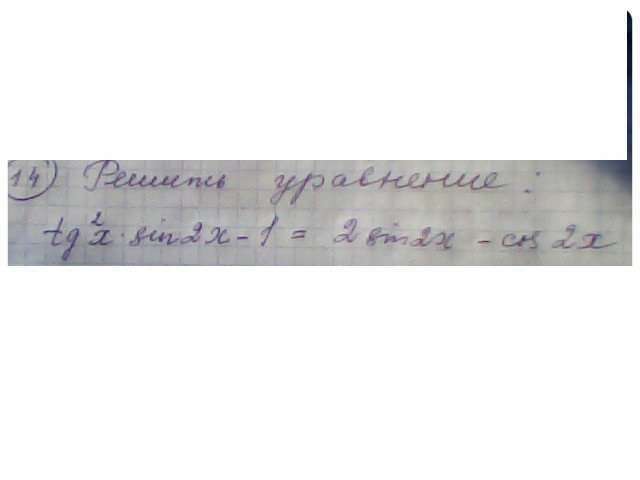 14) Решить уравнение:
tg²x·sin2x-1 = 2sin2x - cos2x